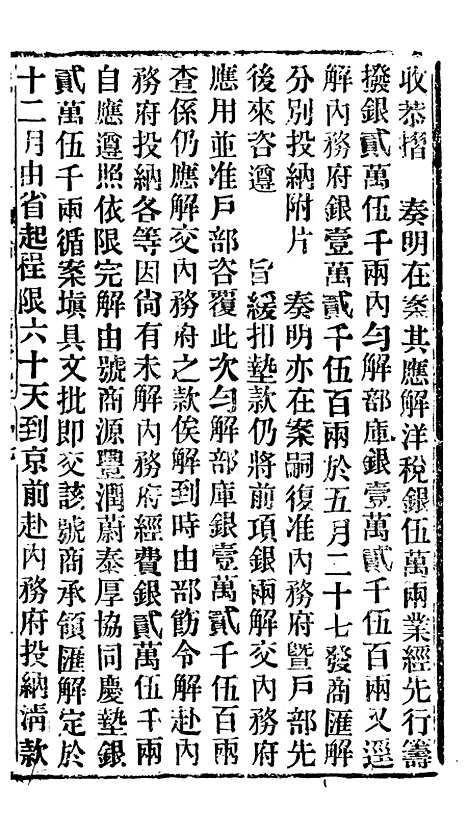 收恭摺　奏明在案其應解洋稅銀伍萬兩業經先行籌
撥銀貳萬伍千兩內勻解部庫銀壹萬貳千伍百兩又逕
解內務府銀壹萬貳千伍百兩於五月二十七發商匯解
分別投納附片　奏明亦在案嗣復准內務府曁戶部先
後來咨遵　旨緩扣墊款仍將前項銀兩解交內務府
應用並准戶部咨覆此次勻解部庫銀壹萬貳千伍百兩
查係仍應解交內務府之款俟解到時由部飭令解赴內
務府投納各等因尙有未解內務府經費銀貳萬伍千兩
自應遵照依限完解由號商源豐潤蔚泰厚協同慶墊銀
貳萬伍千兩循案塡具文批即交該號商承領匯解定於
十二月由省起程限六十天到京前赴內務府投納淸款